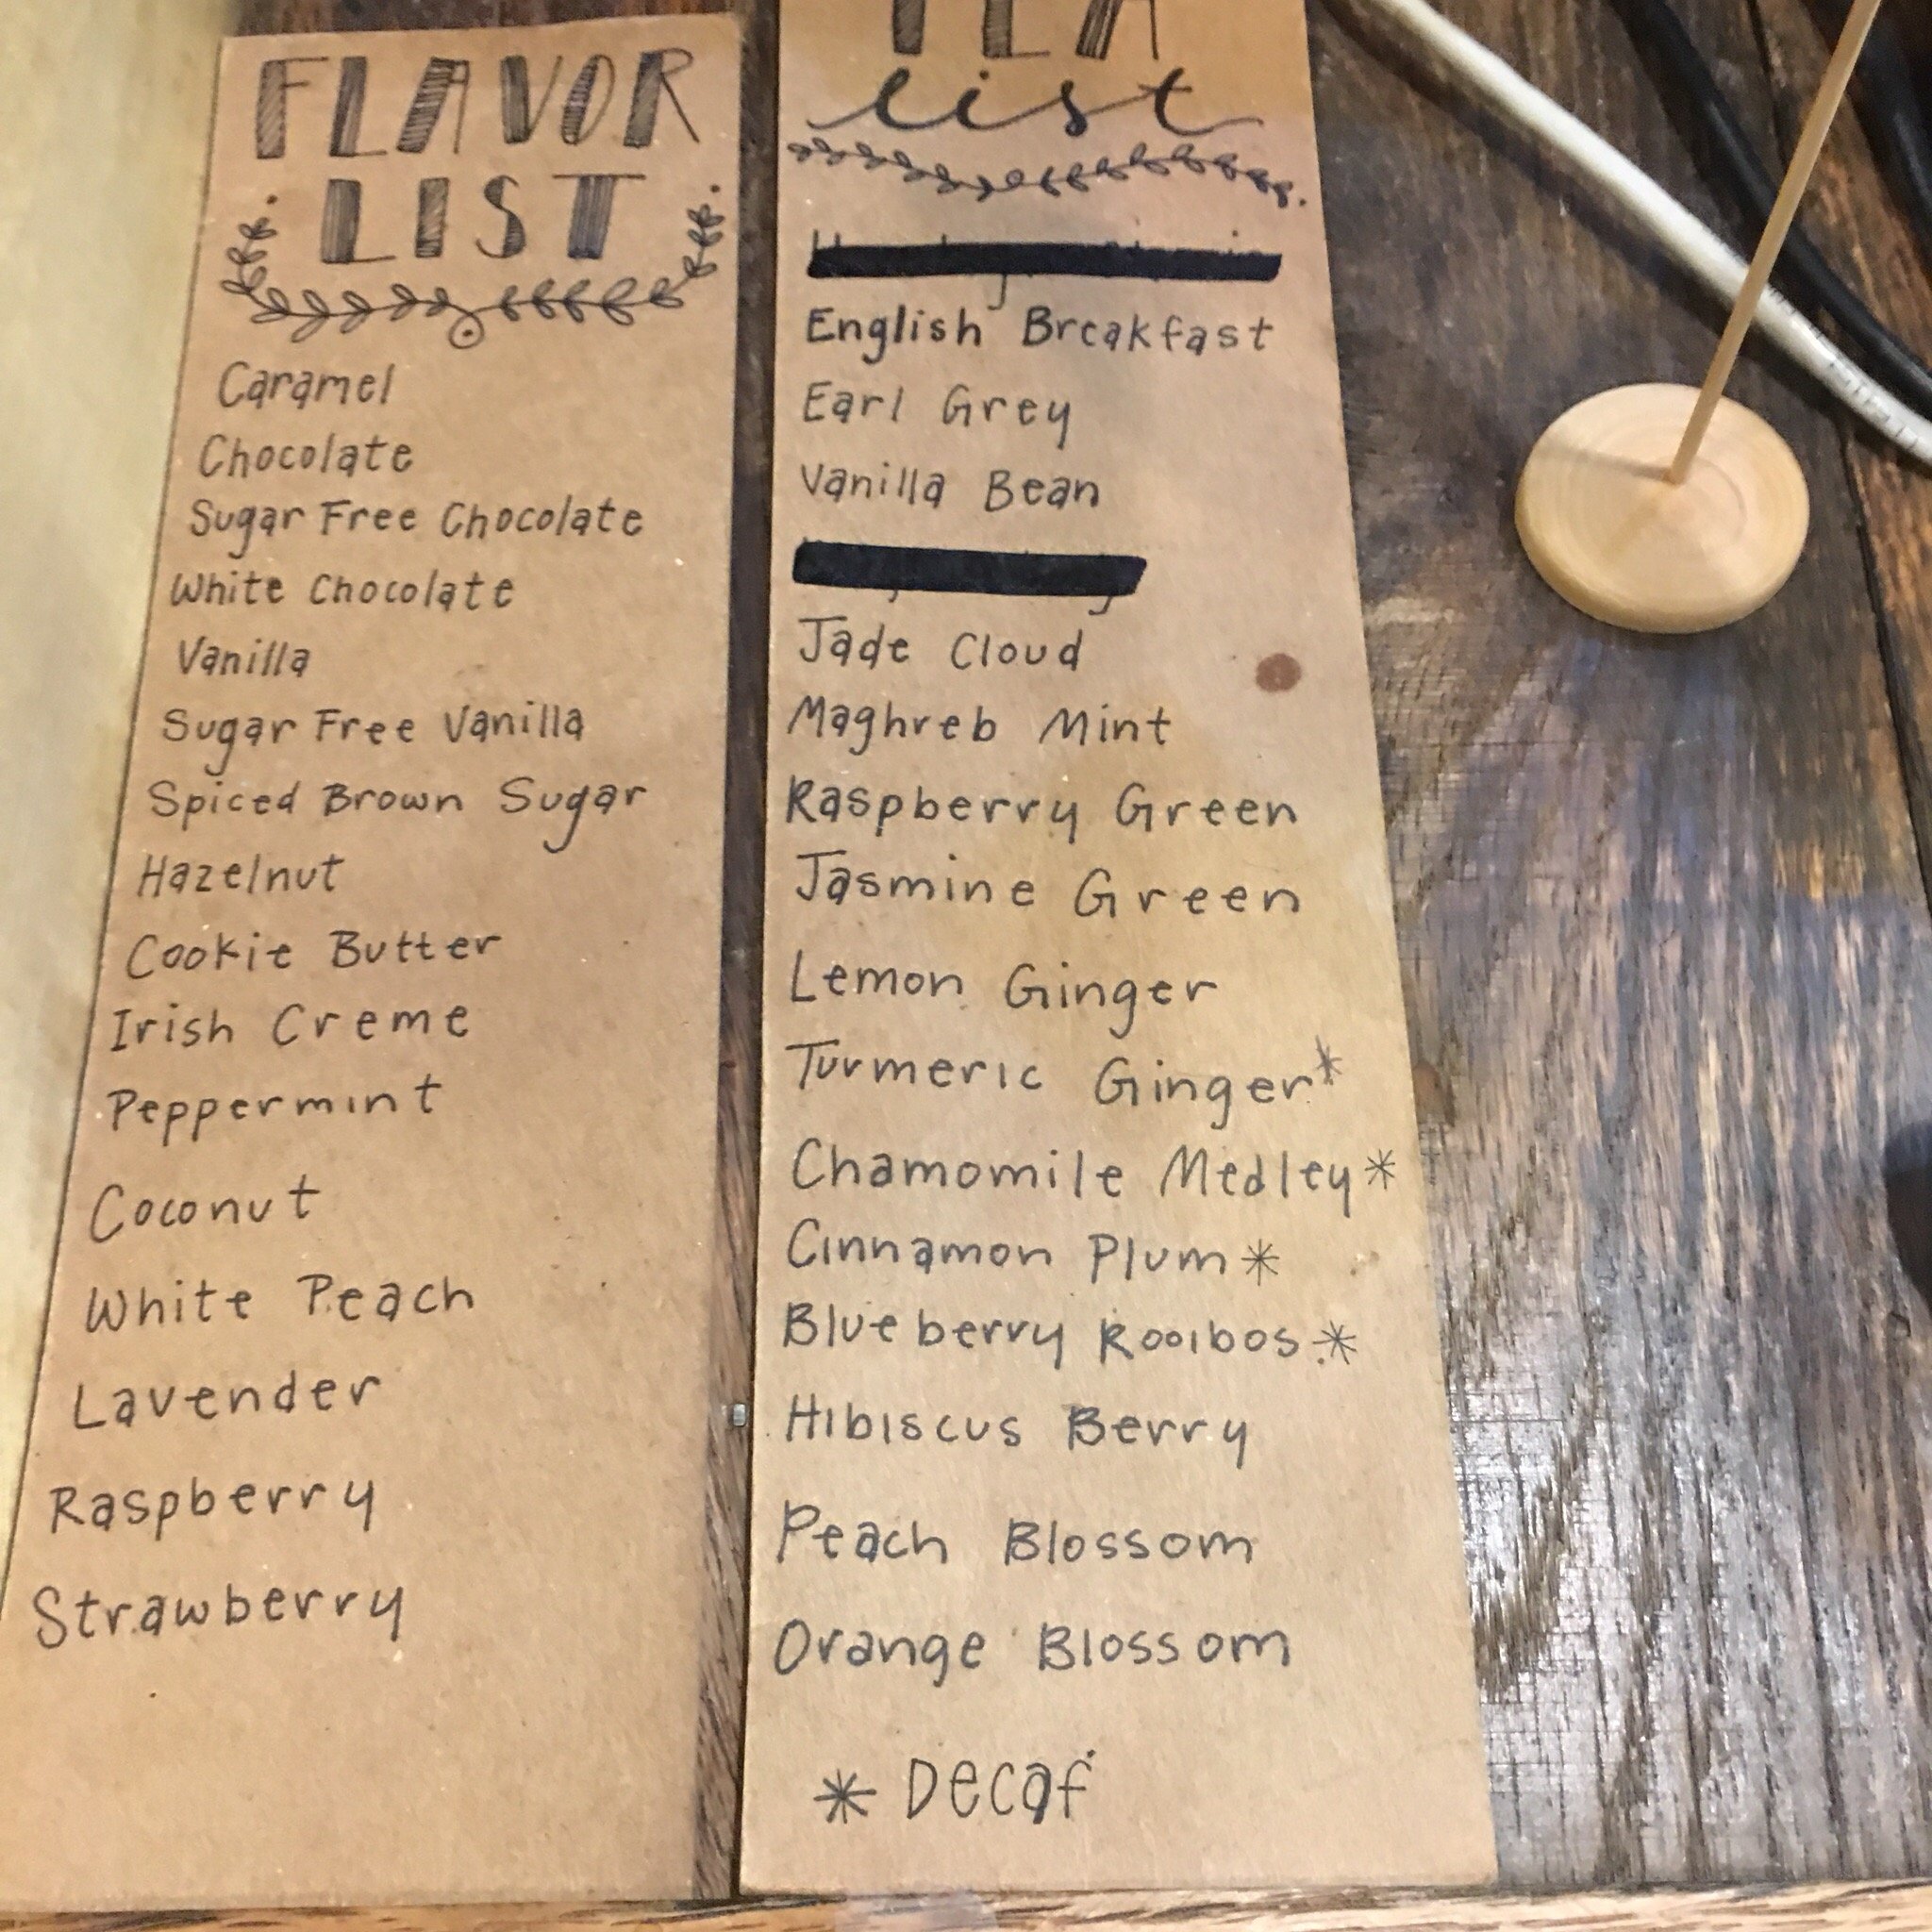 FLAVOR
LIST
Caramel
Chocolate
Sugar Free Chocolate
White Chocolate
Vanilla
Sugar Free Vanilla
Spiced Brown Sugar
Hazelnut
Cookie Butter
Irish Creme
Peppermint
Coconut
White Peach
Lavender
Raspberry
Strawberry
TEA
list
English Breakfast
Earl Grey
Vanilla Bean
Jade Cloud
Maghreb Mint
Raspberry Green
Jasmine Green
Lemon Ginger
Turmeric Ginger*
Chamomile Medley*
Cinnamon Plum*
Blueberry Rooibos*
Hibiscus Berry
Peach Blossom
Orange Blossom
* Decaf